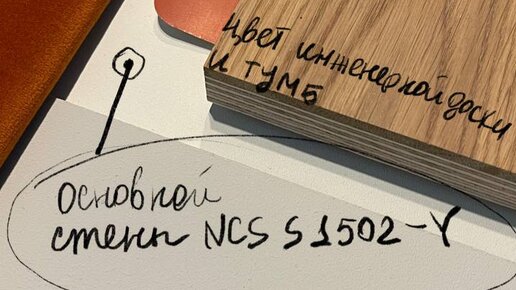 цвет инженерной доски
и тумб
основной
стены NCS S1502-Y